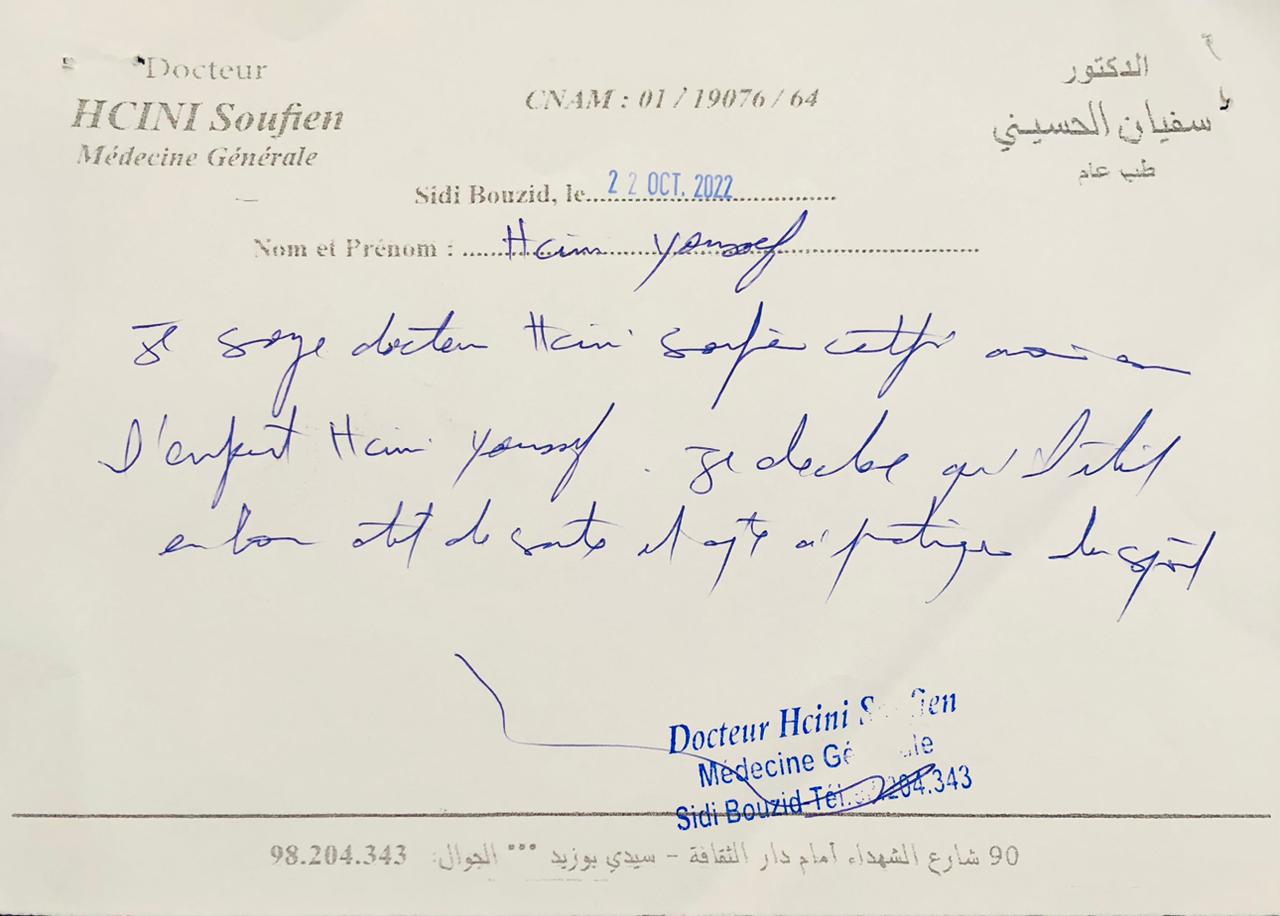 Docteur
HCINI Soufien
Médecine Générale
CNAM : 01 / 19076 / 64
الدكتور
سفيان الحسيني
طب عام
Sidi Bouzid, le 22 OCT. 2022
Nom et Prénom : Hcini Youssef
Je docteur Hcini Soufien
D'enfant Hcini Youssef. Je declare qu'il était
en bon etat de sante et apte a pratiquer du sport
Docteur Hcini Soufien
Médecine Générale
Sidi Bouzid Tél. 204.343
90 شارع الشهداء أمام دار الثقافة - سيدي بوزيد *** الجوال: 98.204.343